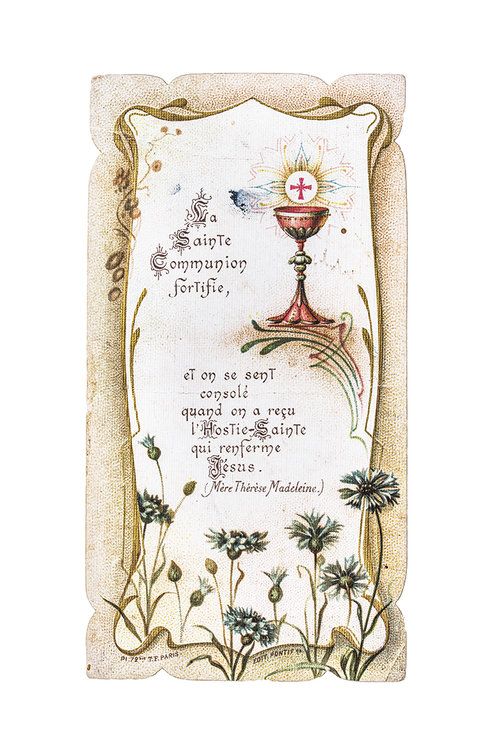 La
Sainte
Communion
fortifie,
et on se sent
consolé
quand on a reçu
l'Hostie-Sainte
qui renferme
Jésus.
(Mère Thérèse Madeleine.)
T.F. PARIS
EDIT. PONTIF.